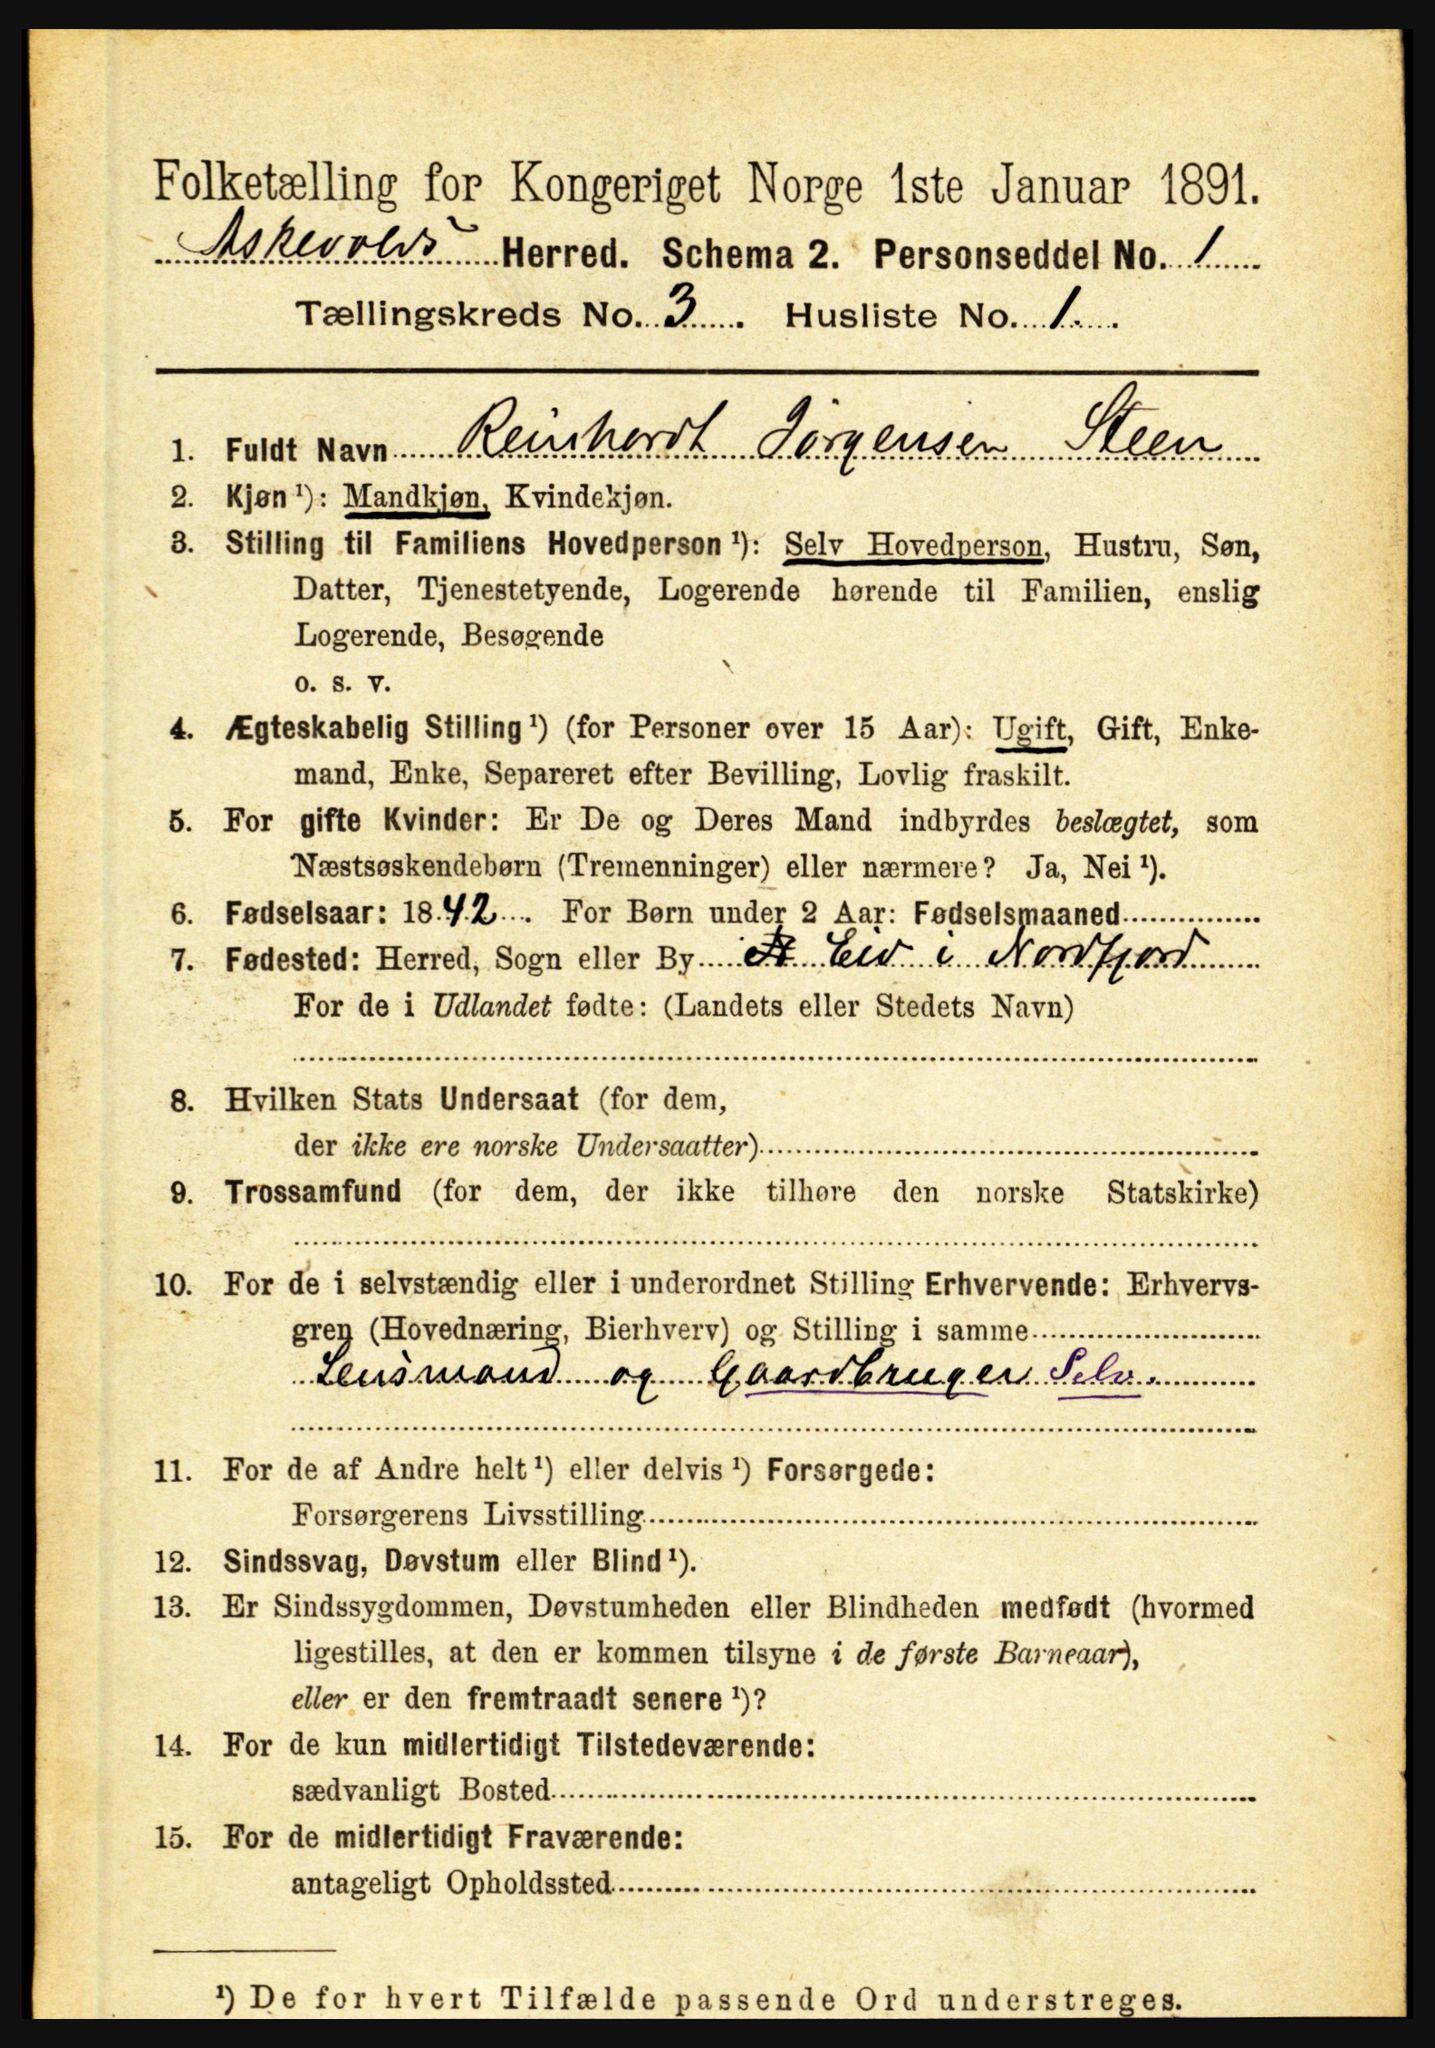 Folketælling for Kongeriget Norge 1ste Januar 1891.
Askevolds Herred. Schema 2. Personseddel No. 1
Tællingskreds No. 3. Husliste No. 1.
1. Fuldt Navn Reinhardt Jörgensen Steen
2. Kjøn ¹): Mandkjøn, Kvindekjøn.
3. Stilling til Familiens Hovedperson ¹): Selv Hovedperson, Hustru, Søn,
Datter, Tjenestetyende, Logerende hørende til Familien, enslig
Logerende, Besøgende
o. s. v.
4. Ægteskabelig Stilling ¹) (for Personer over 15 Aar): Ugift, Gift, Enke-
mand, Enke, Separeret efter Bevilling, Lovlig fraskilt.
5. For gifte Kvinder: Er De og Deres Mand indbyrdes beslægtet, som
Næstsøskendebørn (Tremenninger) eller nærmere? Ja, Nei ¹).
6. Fødselsaar: 1842. For Børn under 2 Aar: Fødselsmaaned
7. Fødested: Herred, Sogn eller By Eid i Nordfjord
For de i Udlandet fødte: (Landets eller Stedets Navn)
8. Hvilken Stats Undersaat (for dem,
der ikke ere norske Undersaatter)
9. Trossamfund (for dem, der ikke tilhøre den norske Statskirke)
10. For de i selvstændig eller i underordnet Stilling Erhvervende: Erhvervs-
gren (Hovednæring, Bierhverv) og Stilling i samme
Lensmand og Gaardbruger Selv.
11. For de af Andre helt ¹) eller delvis ¹) Forsørgede:
Forsørgerens Livsstilling
12. Sindssvag, Døvstum eller Blind ¹).
13. Er Sindssygdommen, Døvstumheden eller Blindheden medfødt (hvormed
ligestilles, at den er kommen tilsyne i de første Barneaar),
eller er den fremtraadt senere ¹)?
14. For de kun midlertidigt Tilstedeværende:
sædvanligt Bosted
15. For de midlertidigt Fraværende:
antageligt Opholdssted
¹) De for hvert Tilfælde passende Ord understreges.